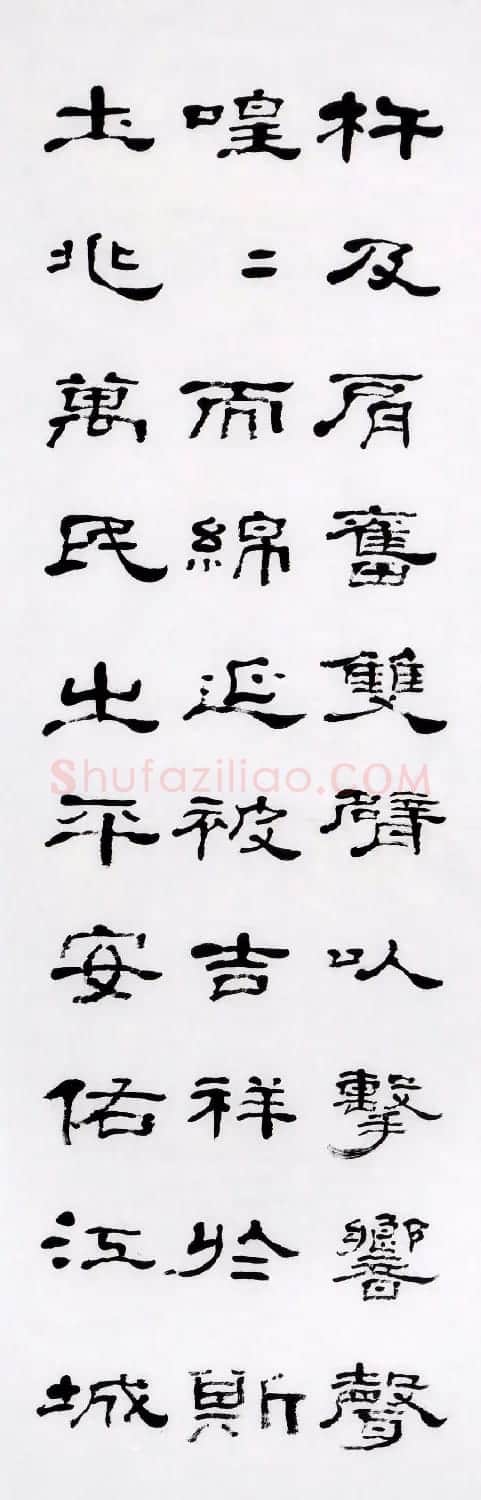 杵及肩奮雙臂以擊響聲
喤〻而綿延被吉祥於斯
土兆萬民之平安佑江城
Shufaziliao.COM